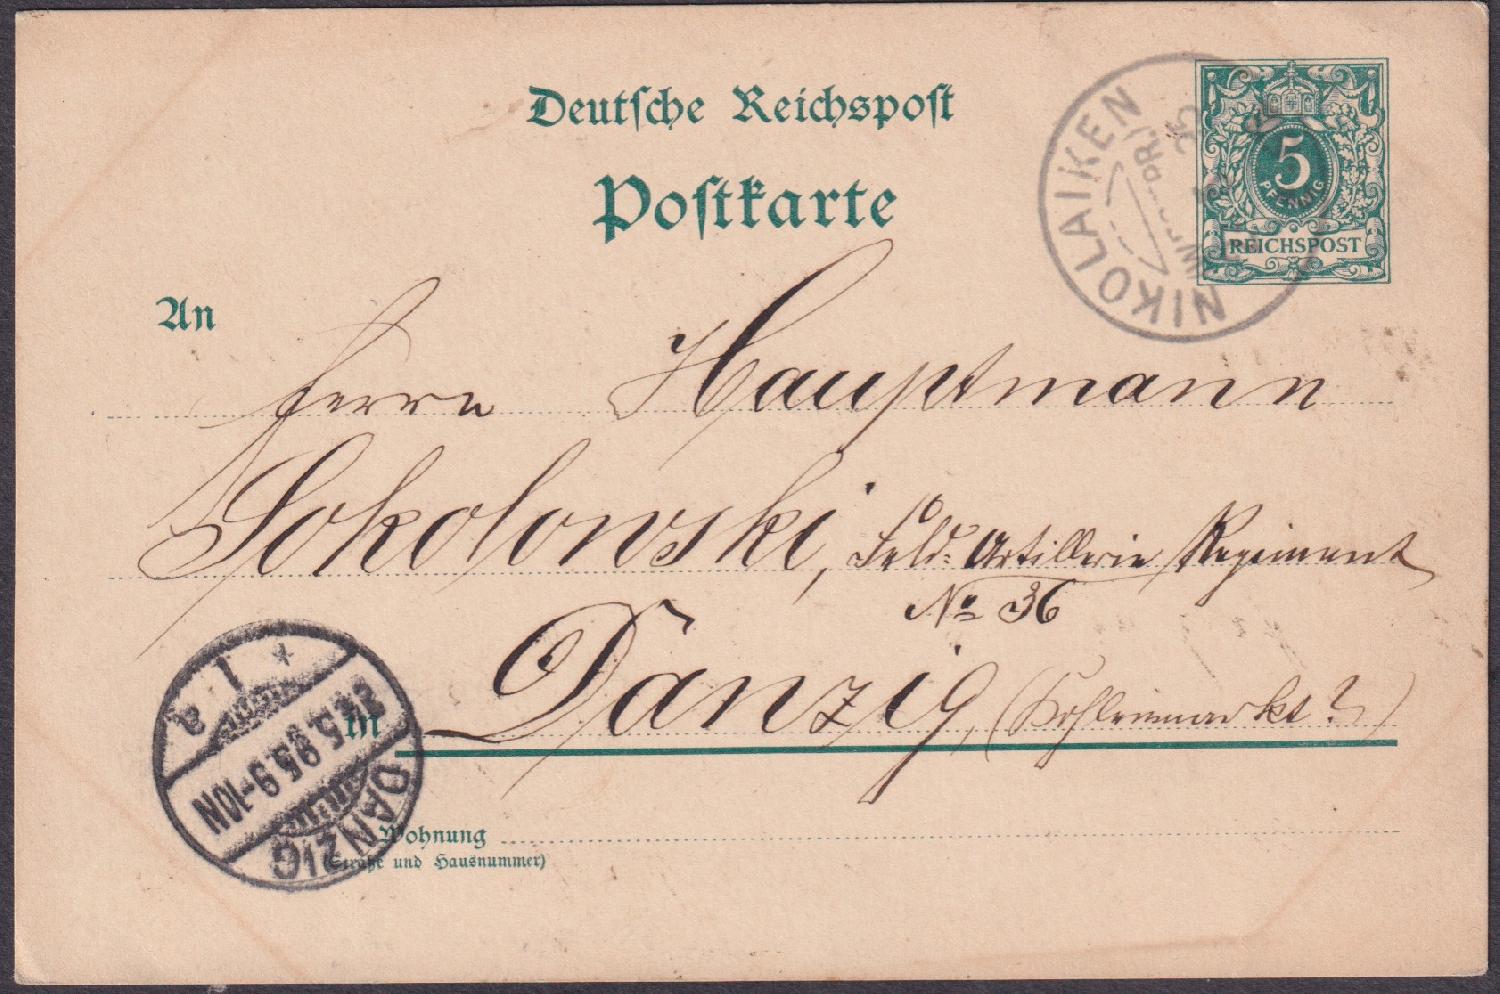 Deutsche Reichspost
Postkarte
5
PFENNIG
REICHSPOST
NIKOLAIKEN
An
Herrn Hauptmann
Sokolowski, Feld-Artillerie Regiment
No 36
in Danzig, (Kohlenmarkt?)
DANZIG
24.5.95.9-10N
1
a
Wohnung
(Straße und Hausnummer)